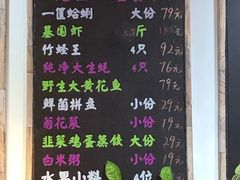 一筐蛤蜊 大份 79元
基围虾 斤
竹蛏王 4只 92元
纯净大生蚝 4只 76元
野生大黄花鱼 79元
鲜菌拼盘 小份 29元
菊花菜 小份 29元
韭菜鸡蛋蒸饺 大份 29元
白米粥 小份
水果小料 4位